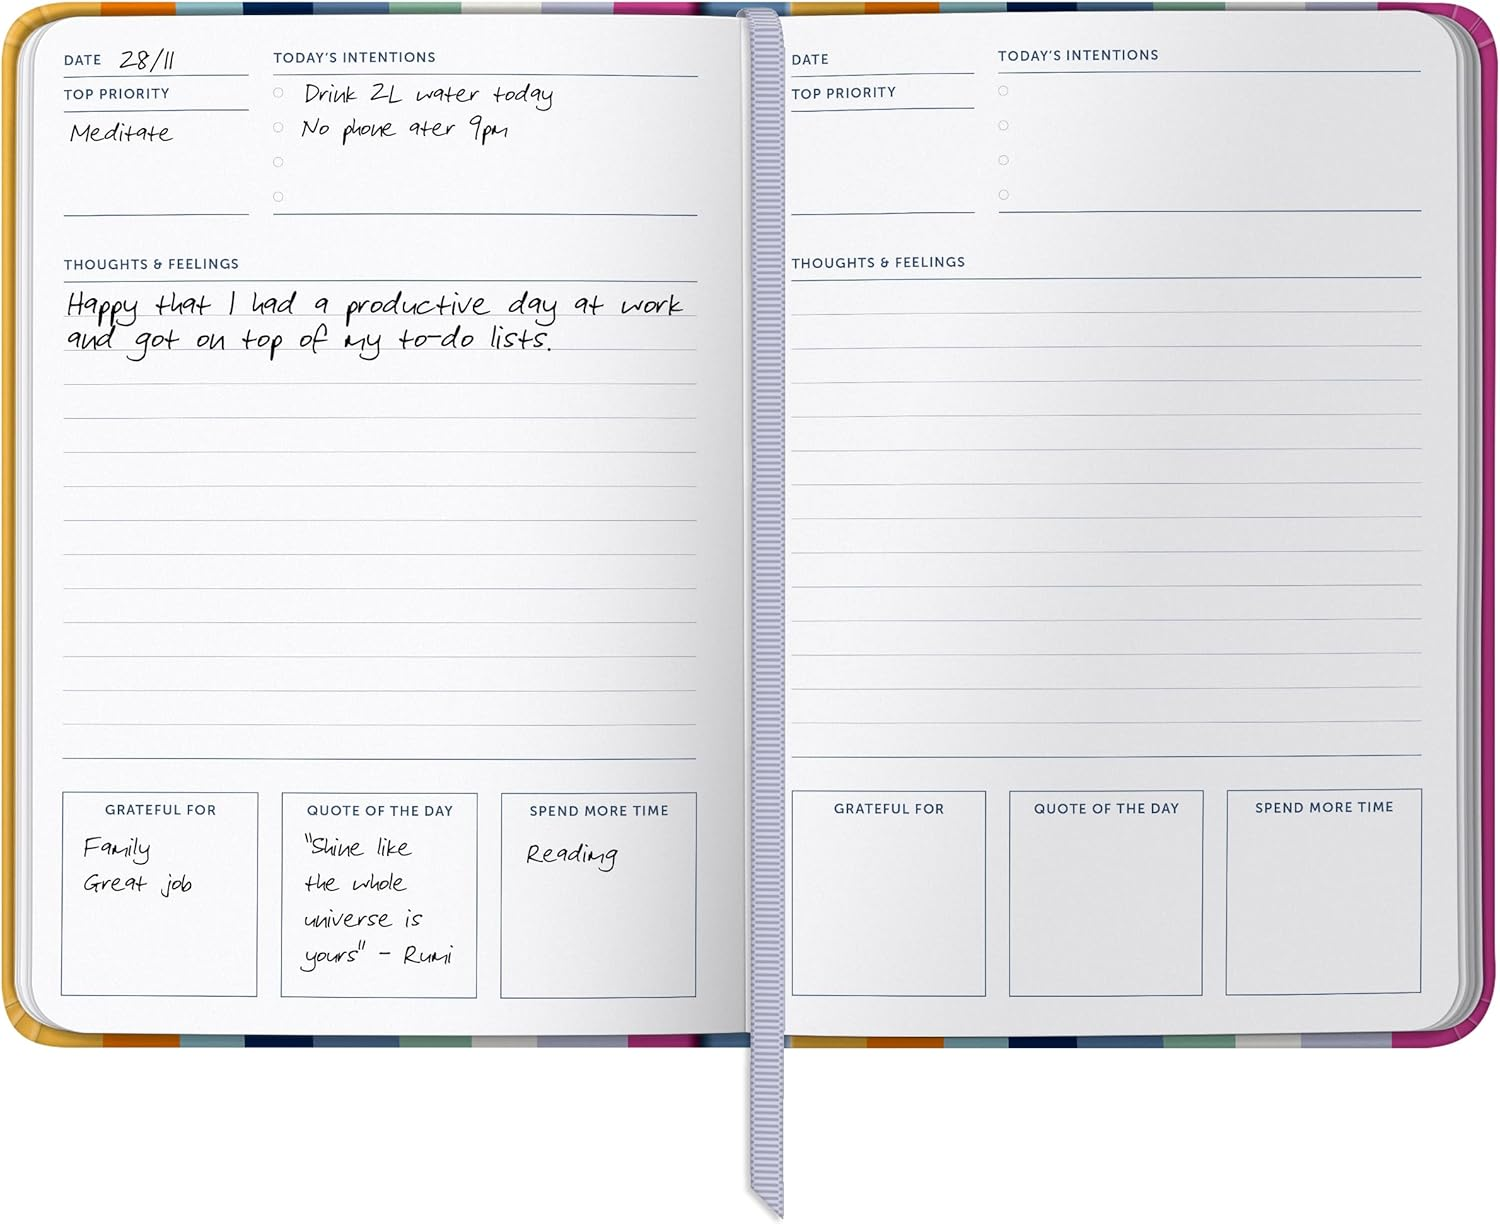 DATE 28/11
TOP PRIORITY
Meditate
TODAY'S INTENTIONS
Drink 2L water today
No phone ater 9pm
THOUGHTS & FEELINGS
Happy that I had a productive day at work
and got on top of my to-do lists.
GRATEFUL FOR
Family
Great job
QUOTE OF THE DAY
"Shine like
the whole
universe is
yours" - Rumi
SPEND MORE TIME
Reading
DATE
TOP PRIORITY
TODAY'S INTENTIONS
THOUGHTS & FEELINGS
GRATEFUL FOR
QUOTE OF THE DAY
SPEND MORE TIME